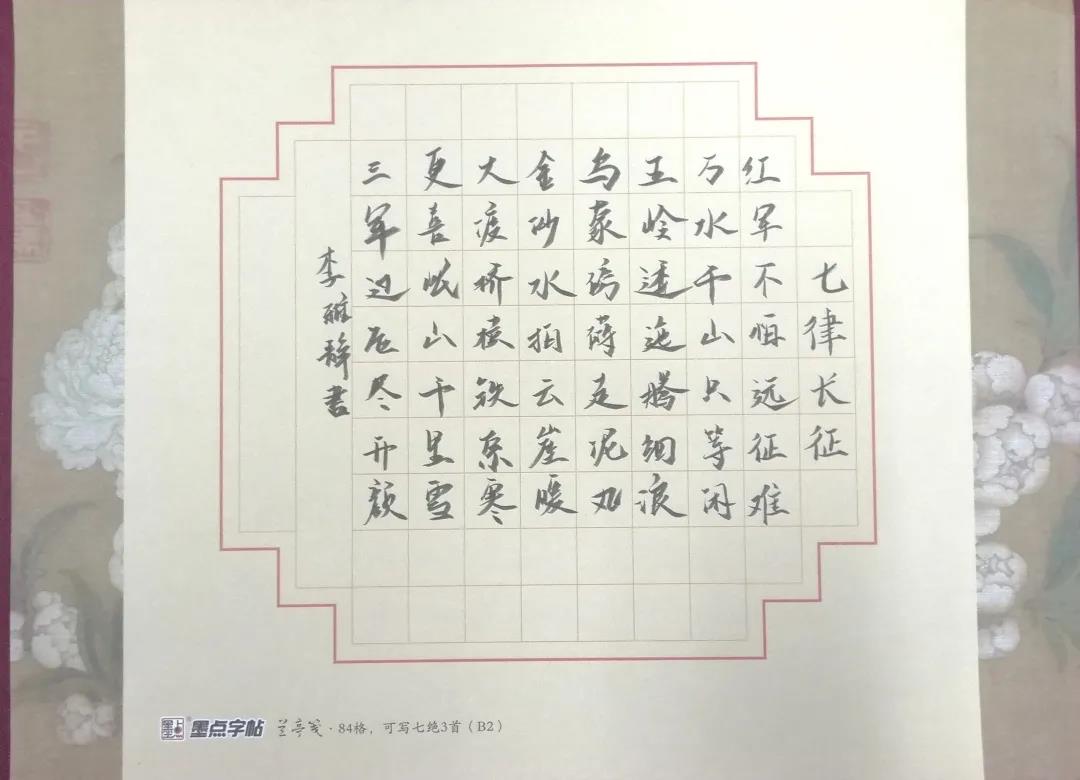 七律长征
红军不怕远征难
万水千山只等闲
五岭逶迤腾细浪
乌蒙磅礴走泥丸
金沙水拍云崖暖
大渡桥横铁索寒
更喜岷山千里雪
三军过后尽开颜
李雅書
墨点字帖 兰亭笺·84格，可写七绝3首（B2）